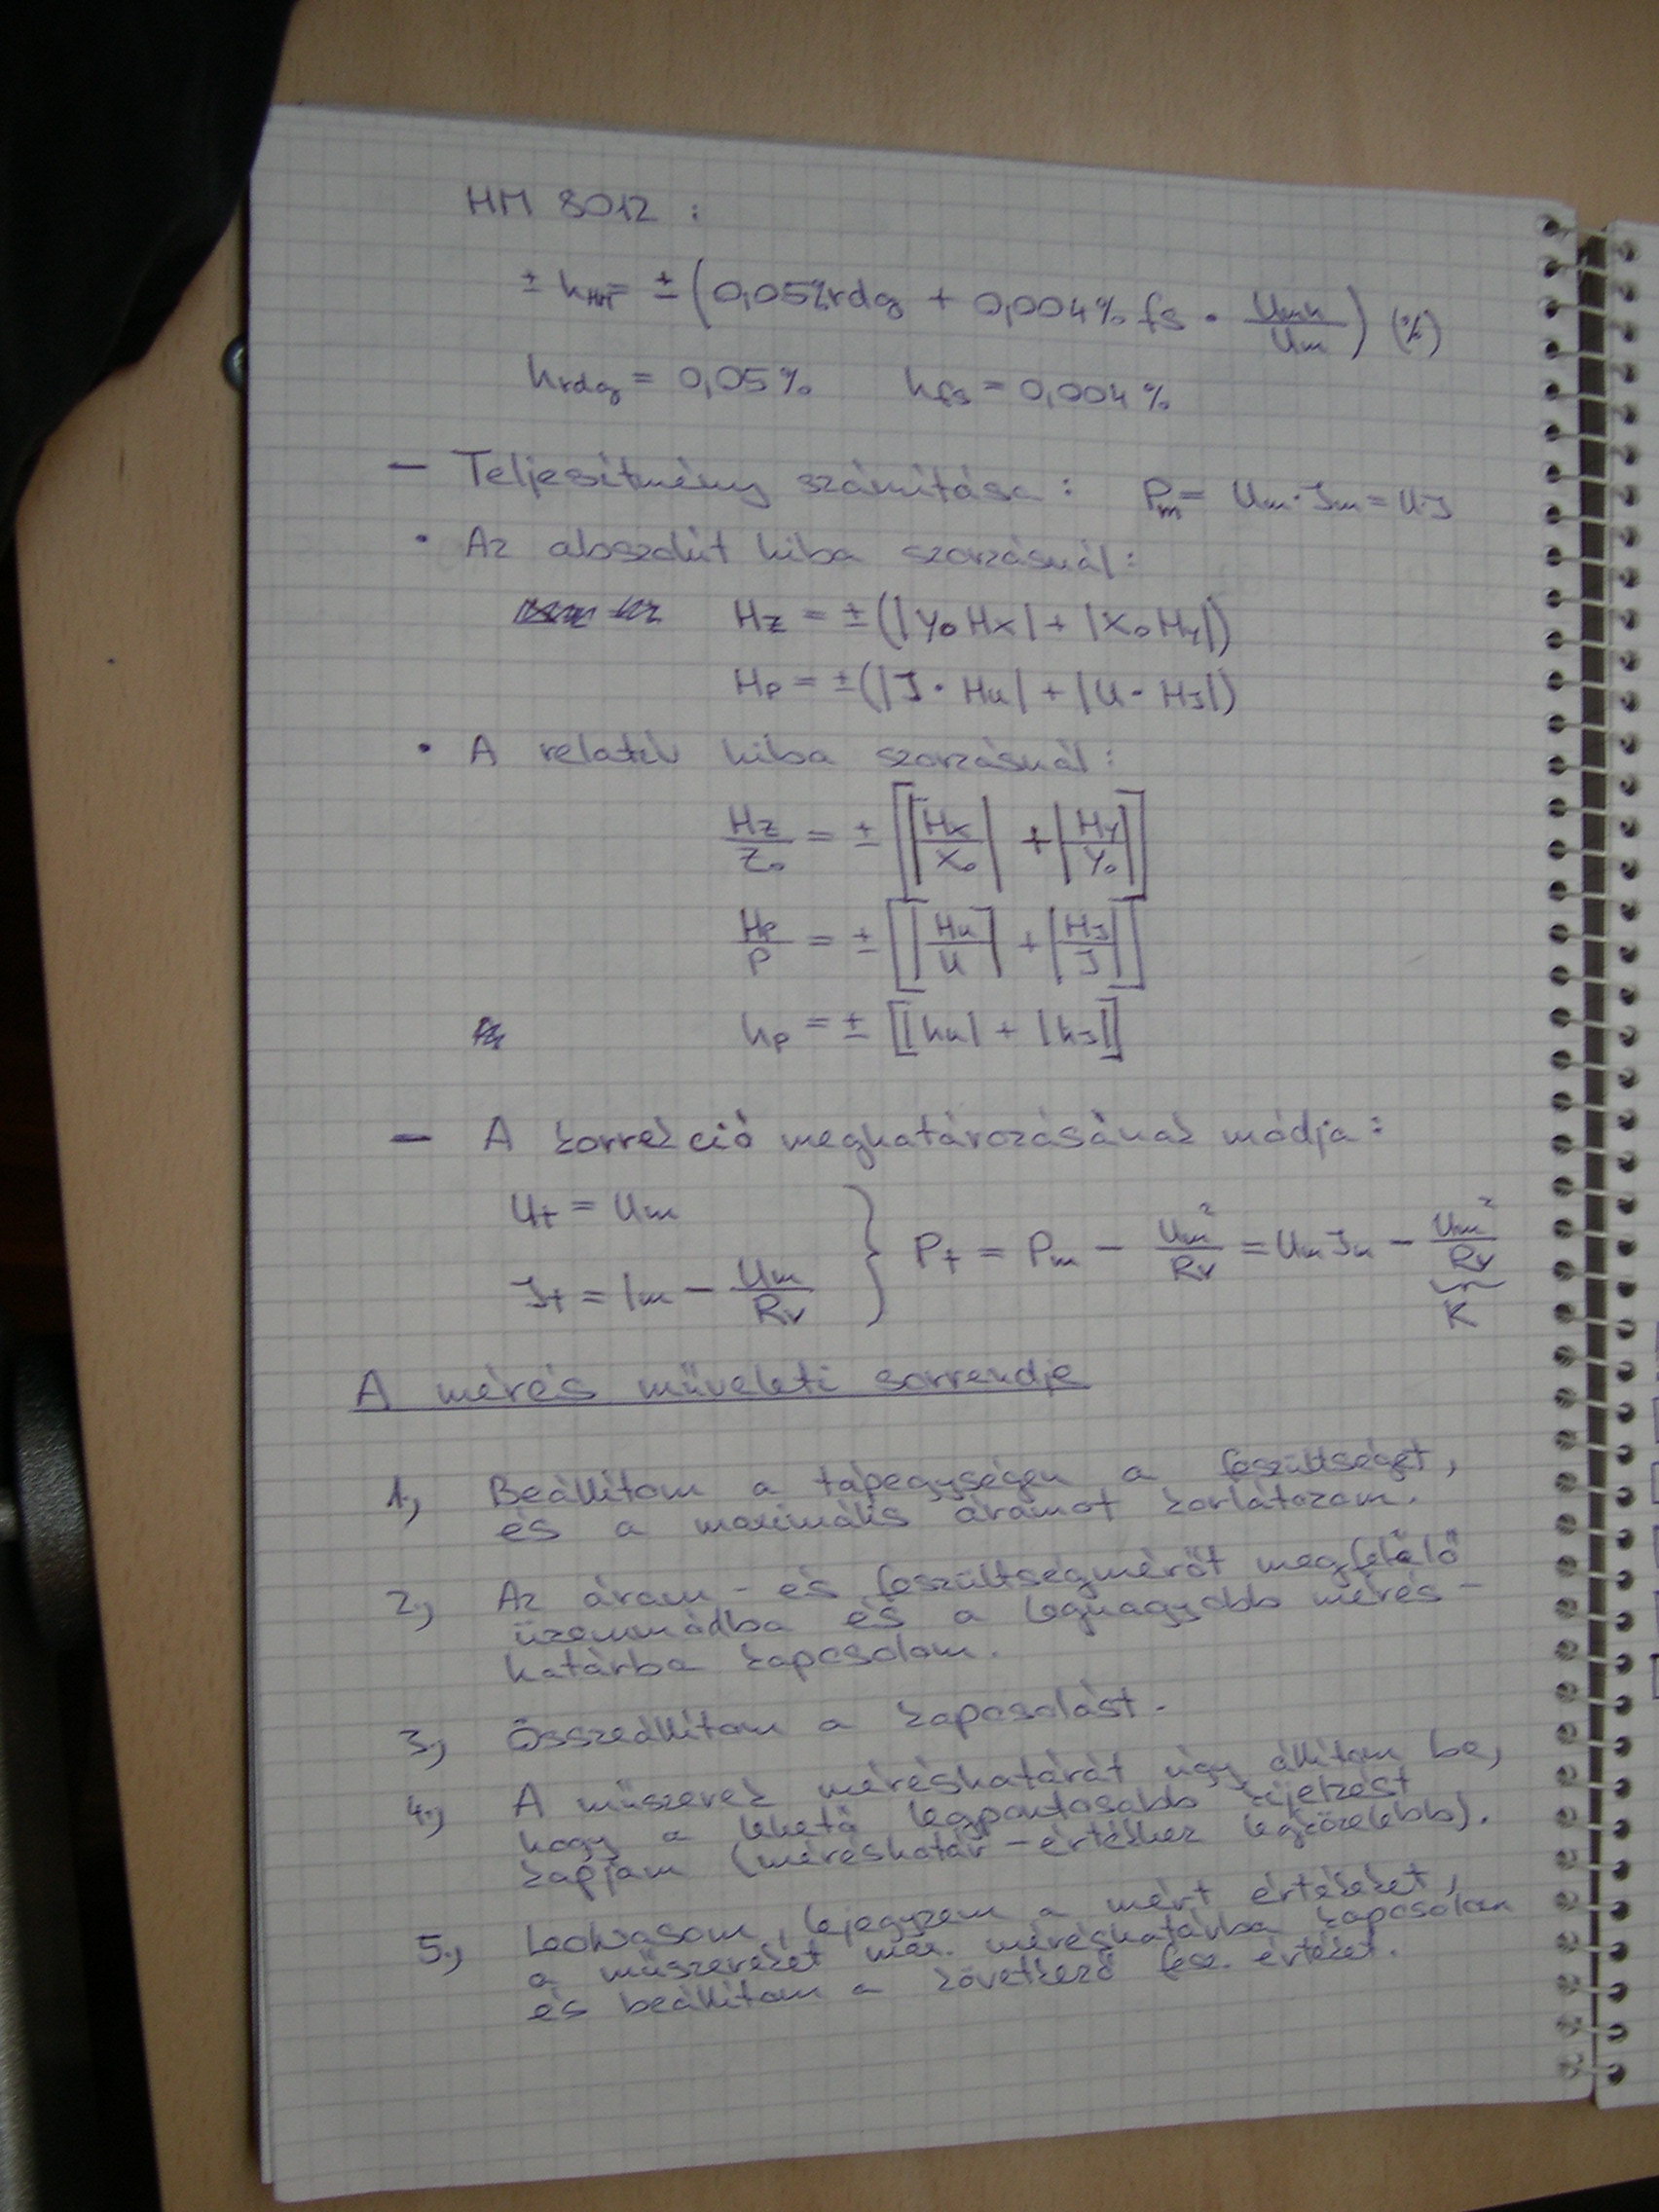 HM 8012 :
± h_HM = ± (0,05%rdg + 0,004% fs · Umh/Um) (%)
hrdg = 0,05% hfs = 0,004%
— Teljesítmény számítása : Pm = Um·Im = U·I
• Az abszolút hiba szorzásnál :
Hz = ±(|Y₀ Hx| + |X₀ Hy|)
Hp = ±(|I · Hu| + |U · HI|)
• A relatív hiba szorzásnál :
Hz/Z₀ = ± [|Hx/X₀| + |Hy/Y₀|]
Hp/P = ± [|Hu/U| + |HI/I|]
hp = ± [|hu| + |hI|]
— A korrekció meghatározásának módja :
Ut = Um
It = Im − Um/Rv } Pt = Pm − Um²/Rv = Um Im − Um²/Rv
K
A mérés műveleti sorrendje
1., Beállítom a tápegységen a feszültséget,
és a maximális áramot korlátozom.
2., Az áram- és feszültségmérőt megfelelő
üzemmódba és a legnagyobb mérés-
határba kapcsolom.
3., Összeállítom a kapcsolást.
4., A műszerek méréshatárát úgy állítom be,
hogy a lehető legpontosabb kijelzést
kapjam (méréshatár-értékhez legközelebb).
5., Leolvasom, lejegyzem a mért értékeket,
a műszereket max. méréshatárba kapcsolom
és beállítom a következő fesz. értéket.